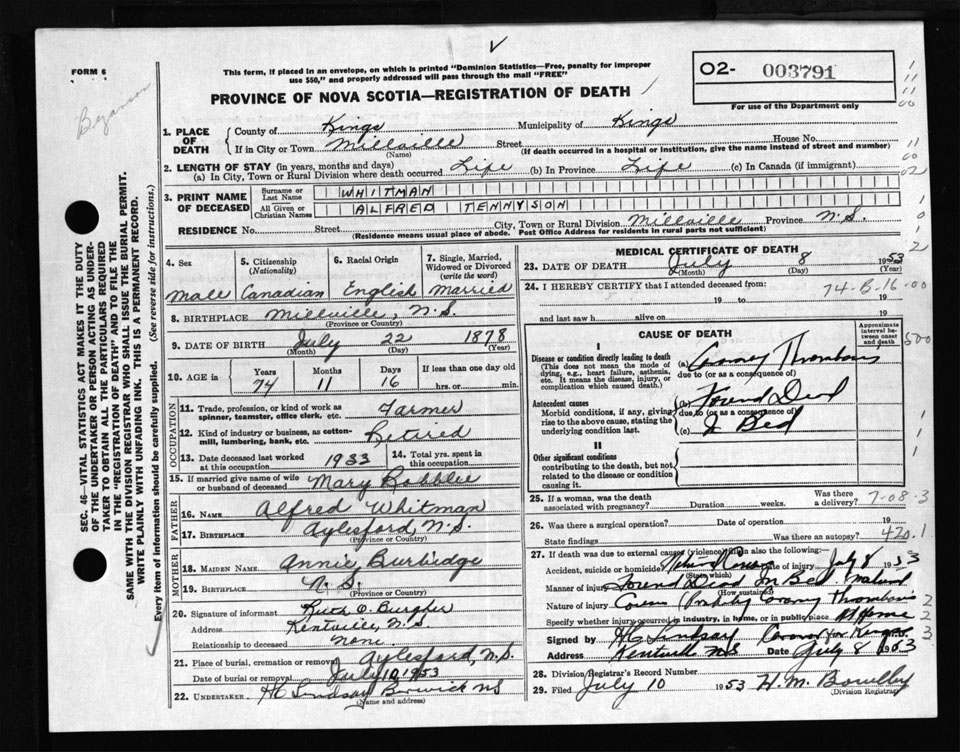 FORM 6
Bezanson
This form, if placed in an envelope, on which is printed "Dominion Statistics—Free, penalty for improper
use $50," and properly addressed will pass through the mail "FREE"
PROVINCE OF NOVA SCOTIA—REGISTRATION OF DEATH
02- 003791
For use of the Department only
SEC. 46—VITAL STATISTICS ACT MAKES IT THE DUTY
OF THE UNDERTAKER OR PERSON ACTING AS UNDER-
TAKER TO OBTAIN ALL THE PARTICULARS REQUIRED
IN THE "REGISTRATION OF DEATH" AND TO FILE THE
SAME WITH THE DIVISION REGISTRAR WHO SHALL ISSUE THE BURIAL PERMIT.
WRITE PLAINLY WITH UNFADING INK. THIS IS A PERMANENT RECORD.
Every item of information should be carefully supplied. (See reverse side for instructions.)
1. PLACE OF DEATH
County of Kings Municipality of Kings
If in City or Town Millville Street House No.
(Name) (If death occurred in a hospital or institution, give the name instead of street and number)
2. LENGTH OF STAY (in years, months and days)
(a) In City, Town or Rural Division where death occurred Life (b) In Province Life (c) In Canada (if immigrant)
3. PRINT NAME OF DECEASED
Surname or Last Name WHITMAN
All Given or Christian Names ALFRED TENNYSON
RESIDENCE No. Street City, Town or Rural Division Millville Province N.S.
(Residence means usual place of abode. Post Office Address for residents in rural parts not sufficient)
4. Sex 5. Citizenship (Nationality) 6. Racial Origin 7. Single, Married, Widowed or Divorced (write the word)
Male Canadian English Married
8. BIRTHPLACE Millville, N.S.
(Province or Country)
9. DATE OF BIRTH July 22 1878
(Month) (Day) (Year)
10. AGE in Years Months Days If less than one day old
74 11 16 hrs. or min.
OCCUPATION
11. Trade, profession, or kind of work as spinner, teamster, office clerk, etc. Farmer
12. Kind of industry or business, as cotton-mill, lumbering, bank, etc. Retired
13. Date deceased last worked at this occupation 1933 14. Total yrs. spent in this occupation
15. If married give name of wife or husband of deceased Mary
FATHER
16. Name Alfred Whitman
17. Birthplace Aylesford, N.S.
(Province or Country)
MOTHER
18. MAIDEN NAME Annie Burbidge
19. BIRTHPLACE N.S.
(Province or Country)
20. Signature of informant Ruth O.
Address Kentville, N.S.
Relationship to deceased None
21. Place of burial, cremation or removal Aylesford, N.S.
Date of burial or removal July 10 1953
22. UNDERTAKER H Lindsay Berwick NS
(Name and address)
MEDICAL CERTIFICATE OF DEATH
23. DATE OF DEATH July 8 1953
(Month) (Day) (Year)
24. I HEREBY CERTIFY that I attended deceased from: 74-B-16-00
19 to 19
and last saw h alive on 19
CAUSE OF DEATH
Approximate interval between onset and death
I
Disease or condition directly leading to death
(This does not mean the mode of dying, e.g., heart failure, asthenia, etc. It means the disease, injury, or complication which caused death.)
(a) Coronary Thrombosis
due to (or as a consequence of)
Antecedent causes
Morbid conditions, if any, giving rise to the above cause, stating the underlying condition last.
Found Dead
due to (or as a consequence of)
(c) Bed
II
Other significant conditions
contributing to the death, but not related to the disease or condition causing it.
25. If a woman, was the death associated with pregnancy? Duration weeks. Was there a delivery? 7-08-3
26. Was there a surgical operation? Date of operation 19
State findings Was there an autopsy? 420.1
27. If death was due to external causes (violence) fill in also the following:
Accident, suicide or homicide? Natural July 8 1953
(State which)
Manner of injury Found Dead In Bed Natural
(How sustained)
Nature of injury Probably Coronary Thrombosis
Specify whether injury occurred in industry, in home, or in public place At Home
Signed by H Lindsay Coroner for Kings
Address Kentville NS Date July 8 1953
28. Division Registrar's Record Number
29. Filed July 10 1953 H.M.
(Division Registrar)